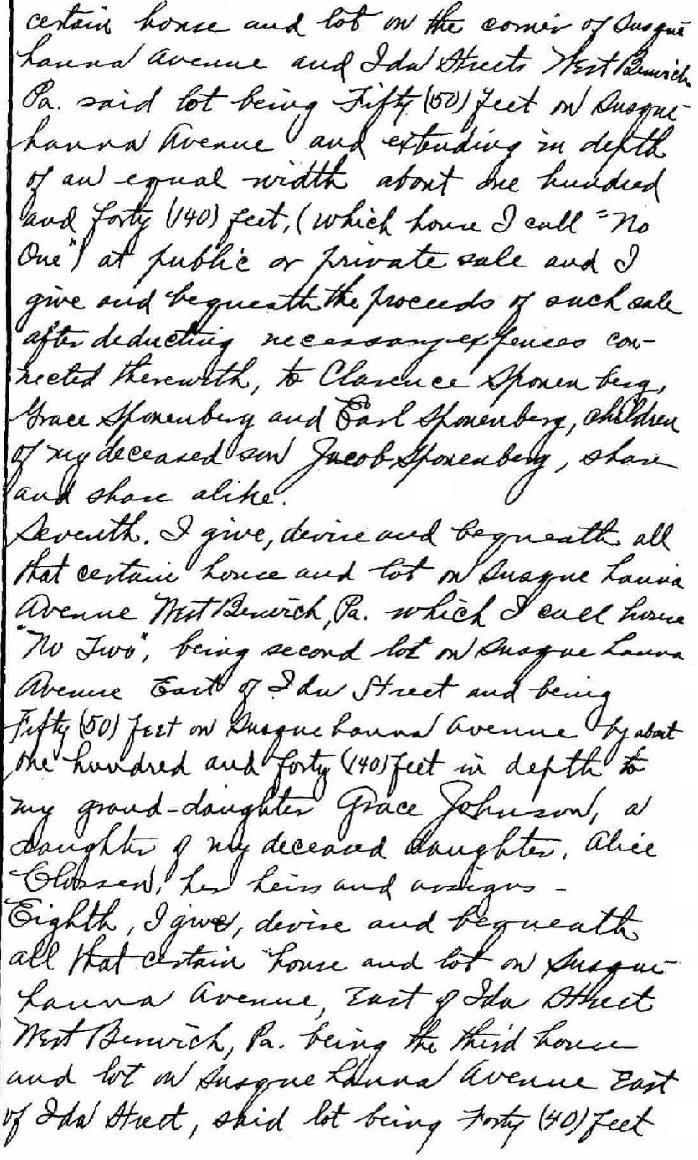 certain house and lot on the corner of Susque-
hanna Avenue and Ida Streets West Berwick
Pa. said lot being Fifty (50) feet on Susque-
hanna Avenue and extending in depth
of an equal width about one hundred
and forty (140) feet, (which house I call "No
One") at public or private sale and I
give and bequeath the proceeds of such sale
after deducting necessary expenses con-
nected therewith, to Clarence Sponenberg,
Grace Sponenberg and Earl Sponenberg, children
of my deceased son Jacob Sponenberg, share
and share alike.
Seventh. I give, devise and bequeath all
that certain house and lot on Susquehanna
Avenue West Berwick, Pa. which I call house
"No Two", being second lot on Susquehanna
Avenue East of Ida Street and being
Fifty (50) feet on Susquehanna Avenue by about
one hundred and forty (140) feet in depth to
my grand-daughter Grace Johnson, a
daughter of my deceased daughter, Alice
Clossen, her heirs and assigns -
Eighth, I give, devise and bequeath
all that certain house and lot on Susque-
hanna Avenue, East of Ida Street
West Berwick, Pa. being the third house
and lot on Susquehanna Avenue East
of Ida Street, said lot being Forty (40) feet